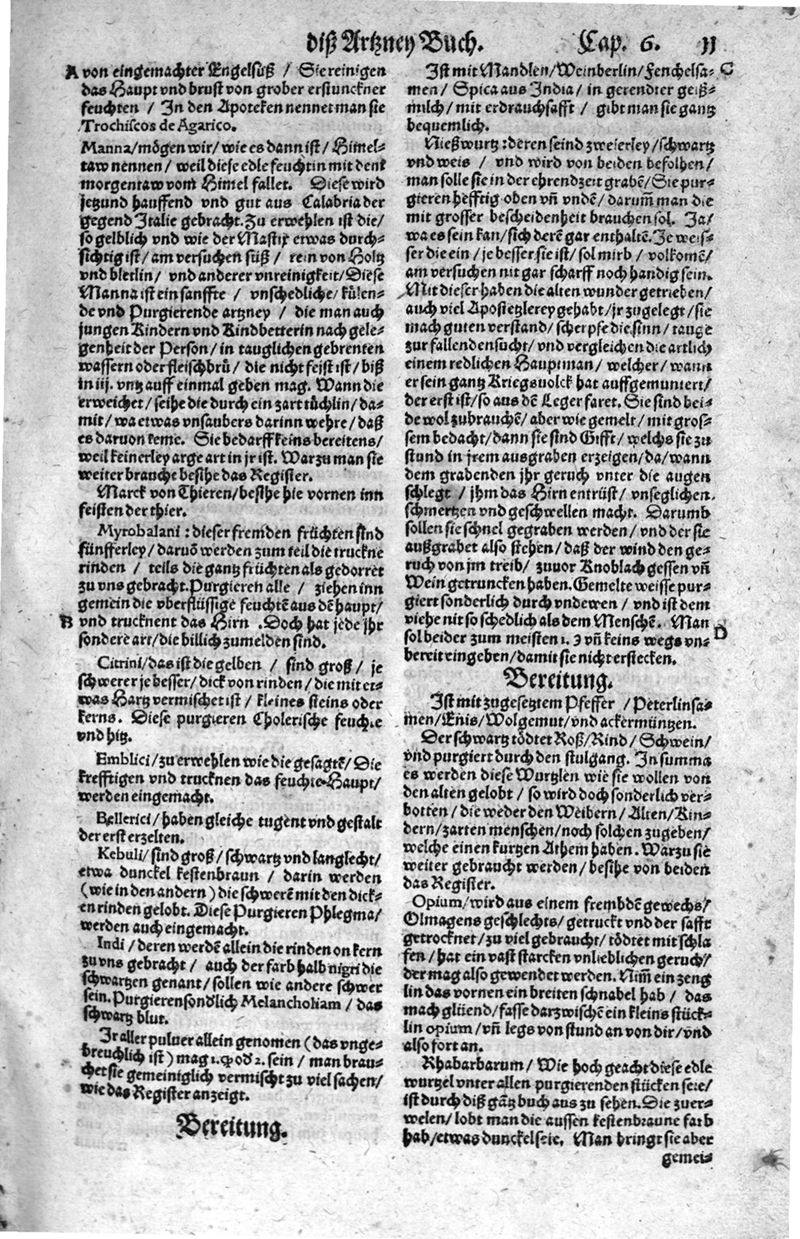 diß Artzney Buch. Cap. 6. 11
A von eingemachter Engelsüß / Sie reinigen
das Haupt vnd brust von grober erstunckner
feuchten / In den Apoteken nennet man sie
Trochiscos de Agarico.
Manna/mögen wir/wie es dann ist/Himel-
taw nennen/weil diese edle feuchtin mit dem
morgentaw vom Himel fallet. Diese wird
jetzund hauffend vnd gut aus Calabria der
gegend Italie gebracht. Zu erwehlen ist die/
so gelblich vnd wie der Mastix etwas durch-
sichtig ist/am versuchen süß/ rein von Holtz
vnd bletlin/ vnd anderer vnreinigkeit/Diese
Manna ist ein sanffte / vnschedliche/külen-
de vnd Purgierende artzney / die man auch
jungen Kindern vnd Kindbetterin nach gele-
genheit der Person/in tauglichen gebrenten
wassern oder fleischbrü/ die nicht feist ist/biß
in iij. vntz auff einmal geben mag. Wann die
erweichet/seihe die durch ein zart tüchlin/da-
mit/wa etwas vnsaubers darinn wehre/daß
es daruon keme. Sie bedarff keins bereitens/
weil keinerley arge art in jr ist. Warzu man sie
weiter brauche besihe das Register.
Marck von Thieren/besihe hie vornen inn
feisten der thier.
Myrobalani: dieser fremden früchten sind
fünfferley/daruō werden zum teil die truckne
rinden / teils die gantz früchten als gedorret
zu vns gebracht. Purgieren alle / ziehen inn
gemein die vberflüssige feuchtē aus dē haupt/
B vnd trucknent das Hirn. Doch hat jede jhr
sondere art/die billich zumelden sind.
Citrini/das ist die gelben / sind groß/ je
schwerer je besser/dick von rinden/die mit et-
was Hartz vermischet ist/ kleines steins oder
kerns. Diese purgieren Cholerische feuchte
vnd hitz.
Emblici/zu erwehlen wie die gesagtē/Die
krefftigen vnd trucknen das feuchte Haupt/
werden eingemacht.
Bellerici/haben gleiche tugent vnd gestalt
der erst erzelten.
Kebuli/sind groß/schwartz vnd langlecht/
etwa dunckel kestenbraun / darin werden
(wie in den andern) die schwerē mit den dick-
en rinden gelobt. Diese Purgieren Phlegma/
werden auch eingemacht.
Indi/deren werdē allein die rinden on kern
zu vns gebracht / auch der farb halb nigri die
schwartzen genant/sollen wie andere schwer
sein. Purgieren sondlich Melancholiam/das
schwartz blut.
Ir aller puluer allein genomen (das vnge-
breuchlich ist) mag 1. od 2. sein / man brau-
chet sie gemeiniglich vermischt zu viel sachen/
wie das Register anzeigt.
Bereitung.
Ist mit Mandlen/Weinberlin/Fenchelsa- C
men/Spica aus India/in gerendter geiß-
milch/mit erdrauchsafft / gibt man sie gantz
bequemlich.
Nießwurtz: deren seind zweierley/schwartz
vnd weis / vnd wird von beiden befolhen/
man solle sie in der ehrendzeit grabē/Sie pur-
gieren hefftig oben vñ vndē/darum̄ man die
mit grosser bescheidenheit brauchen sol. Ja/
wa es sein kan/sich derē gar enthaltē. Je weis-
ser die ein/je besser sie ist/sol mirb/volkomē/
am versuchen nit gar scharff noch handig sein.
Mit dieser haben die alten wunder getrieben/
auch viel Apostetzlerey gehabt/jr zugelegt/sie
mach guten verstand/scherpfe die sinn/tauge
zur fallenden sucht/vnd vergleichen die artlich
einem redlichen Hauptman/welcher/wann
er sein gantz Kriegsuolck hat auffgemuntert/
der erst ist/so aus dē Leger faret. Sie sind bei-
de wol zubrauchē/aber wie gemelt/mit gros-
sem bedacht/dann sie sind Gifft/welchs sie zu
stund in jrem ausgraben erzeigen/da/wann
dem grabenden jhr geruch vnter die augen
schlegt/jhm das Hirn entrüst/vnseglichen
schmertzen vnd geschwellen macht. Darumb
sollen sie schnel gegraben werden/vnd der sie
außgrabet also stehen/daß der wind den ge-
ruch von jm treib/zuuor Knoblach gessen vñ
Wein getruncken haben. Gemelte weisse pur-
giert sonderlich durch vndewen/vnd ist dem
viehe nit so schedlich als dem Menschē. Man D
sol beider zum meisten 1. З vñ keins wegs vn-
bereit eingeben/damit sie nicht erstecken.
Bereitung.
Ist mit zugesetztem Pfeffer / Peterlinsa-
men/Enis/Wolgemut/vnd ackermüntzen.
Der schwartz tödtet Roß/Rind/Schwein/
vnd purgiert durch den stulgang. In summa
es werden diese Wurtzlen wie sie wollen von
den alten gelobt/so wird doch sonderlich ver-
botten/die weder den Weibern/Alten/Kin-
dern/zarten menschen/noch solchen zugeben/
welche einen kurtzen Athem haben. Warzu sie
weiter gebraucht werden/besihe von beiden
das Register.
Opium/wird aus einem frembdē gewechs/
Olmagens geschlechts/getruckt vnd der safft
getrocknet/zu viel gebraucht/tödtet mit schla
fen/hat ein vast starcken vnlieblichen geruch/
der mag also gewendet werden. Nim̄ ein zeng
lin das vornen ein breiten schnabel hab / das
mach glüend/fasse darzwischē ein kleins stück-
lin opium/vñ legs von stund an von dir/vnd
also fort an.
Rhabarbarum/ Wie hoch geacht diese edle
wurtzel vnter allen purgierenden stücken seie/
ist durch diß gātz buch aus zu sehen. Die zuer-
welen/lobt man die aussen kestenbraune farb
hab/etwas dunckel seie. Man bringt sie aber
gemei-